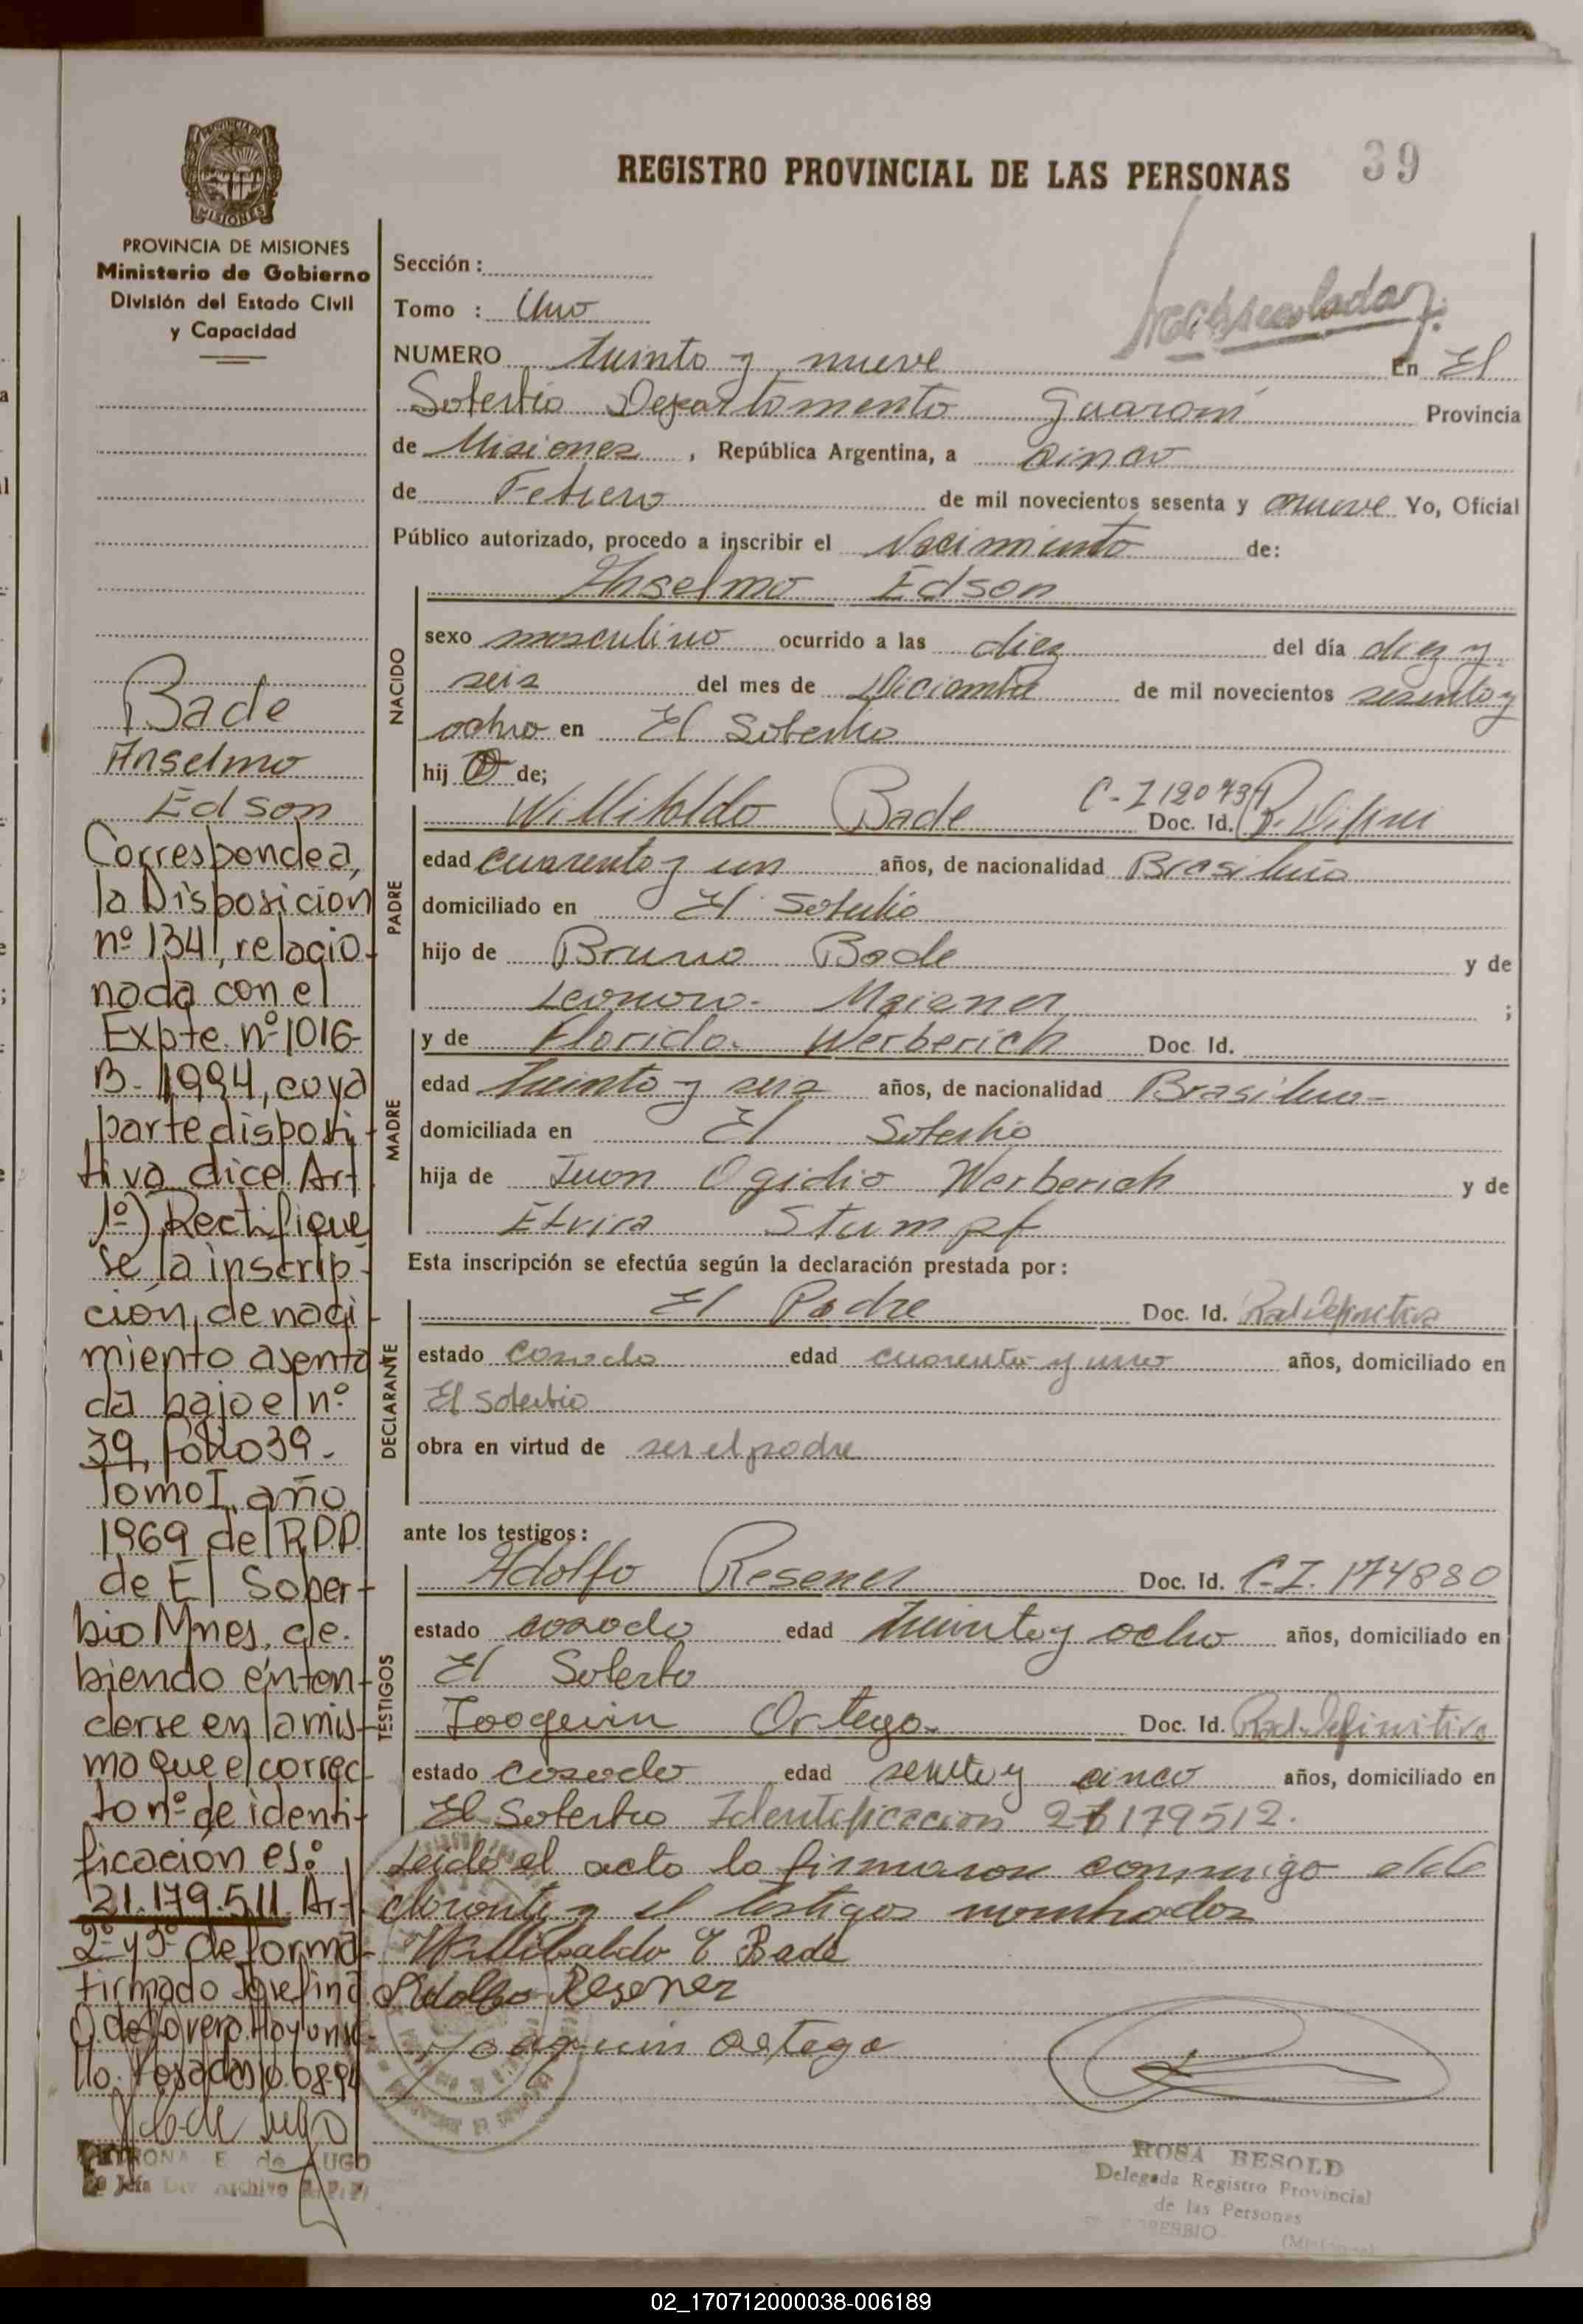 39
REGISTRO PROVINCIAL DE LAS PERSONAS
PROVINCIA DE MISIONES
Ministerio de Gobierno
División del Estado Civil
y Capacidad
Sección :
Tomo : Uno
NUMERO Treinta y nueve En El
Soberbio Departamento Guaraní Provincia
de Misiones , República Argentina, a cinco
de Febrero de mil novecientos sesenta y nueve Yo, Oficial
Público autorizado, procedo a inscribir el Nacimiento de:
NACIDO
Anselmo Edson
sexo masculino ocurrido a las diez del día diez y
seis del mes de Diciembre de mil novecientos sesenta y
ocho en El Soberbio
hij o de;
PADRE
Willibaldo Bade C-I 120 Doc. Id.
edad cuarenta y un años, de nacionalidad Brasileña
domiciliado en El Soberbio
hijo de Bruno Bade y de
Leonora ;
MADRE
y de Florida Werberich Doc. Id.
edad treinta y seis años, de nacionalidad Brasilera
domiciliada en El Soberbio
hija de Juan Ogidio Werberich y de
Elvira Stumpf
Esta inscripción se efectúa según la declaración prestada por :
DECLARANTE
El Padre Doc. Id. Rad Definitiva
estado casado edad cuarenta y uno años, domiciliado en
El Soberbio
obra en virtud de ser el padre
ante los testigos :
TESTIGOS
Adolfo Resener Doc. Id. C.I. 174880
estado casado edad treinta y ocho años, domiciliado en
El Soberbio
Joaquin Ortega Doc. Id. Rad. Definitiva
estado casado edad sesenta y cinco años, domiciliado en
El Soberbio Identificacion 21179512.
Leido el acto lo firmaron conmigo el de
clarante y el testigos nombrados
Willibaldo E Bade
Adolfo Resener
Joaquin Ortega
ROSA BESOLD
Delegada Registro Provincial
de las Personas
Bade
Anselmo
Edson
Corresponde a
la Disposicion
nº 134, relacio-
nada con el
Expte. nº 1016-
B-1994, cuya
parte disposi-
tiva dice: Art
1º) Rectifique
se la inscrip-
ción de naci-
miento asenta
da bajo el nº
39, folio 39-
Tomo I, año
1969 del R.P.P.
de El Sober-
bio Mnes, de-
biendo enten-
derse en la mis-
ma que el correc
to nº de identi-
ficacion es:
21.179.511 Art
2º y 3º de forma-
firmado Josefina
Posadas 10.08.94
02_170712000038-006189